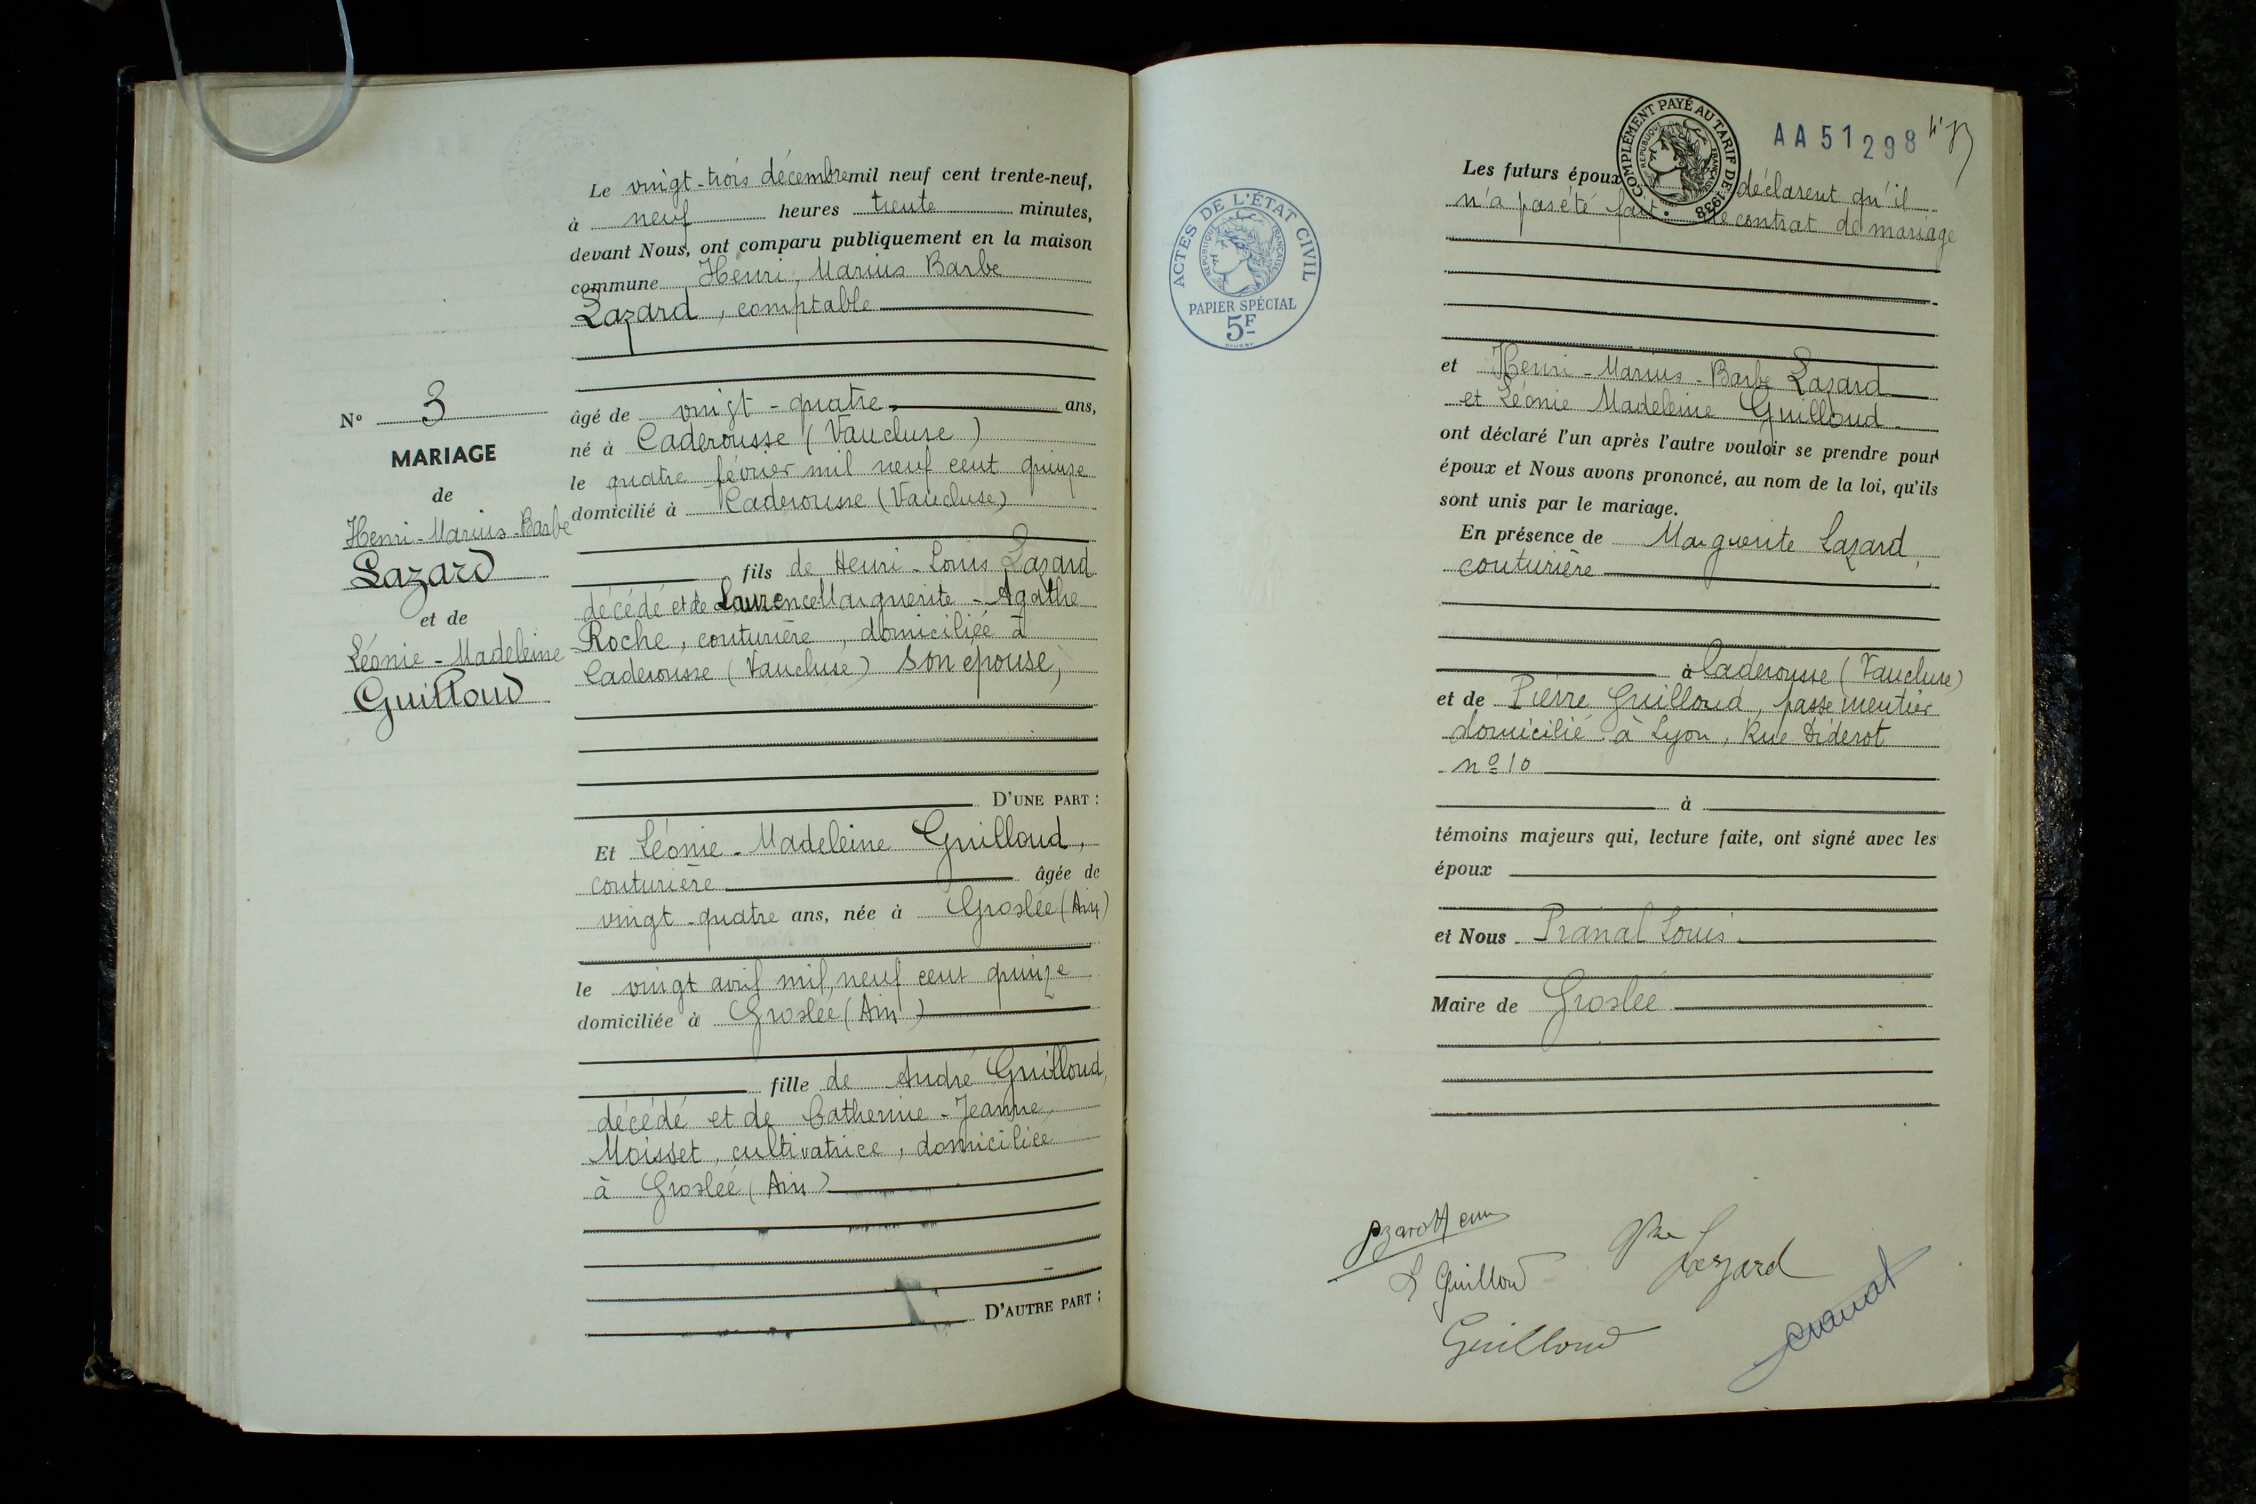 Le vingt-trois décembre mil neuf cent trente-neuf,
à neuf heures trente minutes,
devant Nous, ont comparu publiquement en la maison
commune Henri, Marius Barbe
Lazard, comptable
N° 3
MARIAGE
de
Henri-Marius-Barbe
Lazard
et de
Léonie-Madeleine
Guilloud
âgé de vingt-quatre ans,
né à Caderousse (Vaucluse)
le quatre février mil neuf cent quinze
domicilié à Caderousse (Vaucluse)
fils de Henri-Louis Lazard
décédé et de Laurence Marguerite-Agathe
Roche, couturière, domiciliée à
Caderousse (Vaucluse) son épouse,
D'UNE PART :
Et Léonie-Madeleine Guilloud,
couturière âgée de
vingt-quatre ans, née à Groslée (Ain)
le vingt avril mil neuf cent quinze
domiciliée à Groslée (Ain)
fille de André Guilloud,
décédé et de Catherine-Jeanne
Moisset, cultivatrice, domiciliée
à Groslée (Ain)
D'AUTRE PART :
ACTES DE L'ÉTAT CIVIL
RÉPUBLIQUE FRANÇAISE
PAPIER SPÉCIAL
5F
COMPLÉMENT PAYÉ AU TARIF DE 1938
RÉPUBLIQUE FRANÇAISE
AA 51298
Les futurs époux déclarent qu'il
n'a pas été fait de contrat de mariage
et Henri-Marius-Barbe Lazard
et Léonie Madeleine Guilloud
ont déclaré l'un après l'autre vouloir se prendre pour
époux et Nous avons prononcé, au nom de la loi, qu'ils
sont unis par le mariage.
En présence de Marguerite Lazard,
couturière
à Caderousse (Vaucluse)
et de Pierre Guilloud, passementier
domicilié à Lyon, Rue Diderot
n° 10
à
témoins majeurs qui, lecture faite, ont signé avec les
époux
et Nous Pranal Louis
Maire de Groslée
Lazard Henri
L Guilloud
Lazard
Guilloud
Pranal